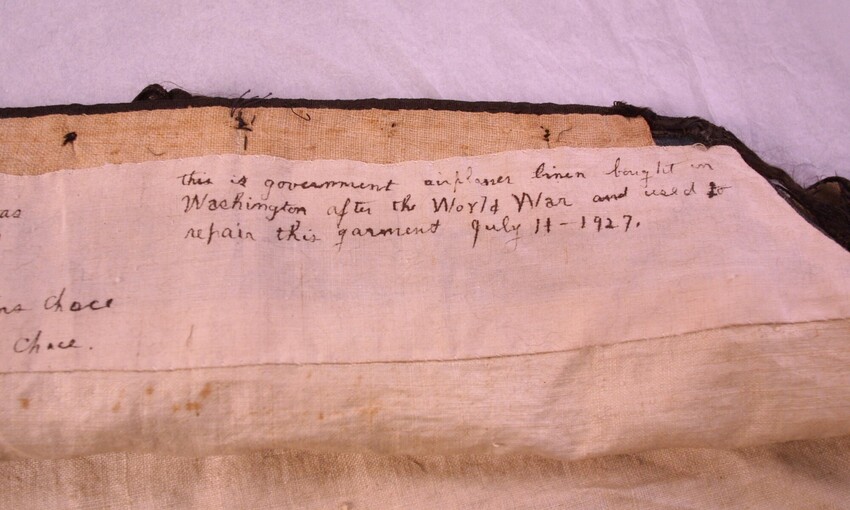 this is government airplaner linen bought in
Washington after the World War and used to
repair this garment July 11-1927.
as
ns Chace
Chace.